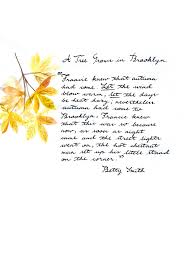 A Tree Grows in Brooklyn
"Francie knew that autumn
had come. Let the wind
blow warm, let the days
be heat hazy; nevertheless
autumn had come to
Brooklyn. Francie knew
that this was so because
now, as soon as night
came and the street lights
went on, the hot chestnut
man set up his little stand
on the corner."
Betty Smith